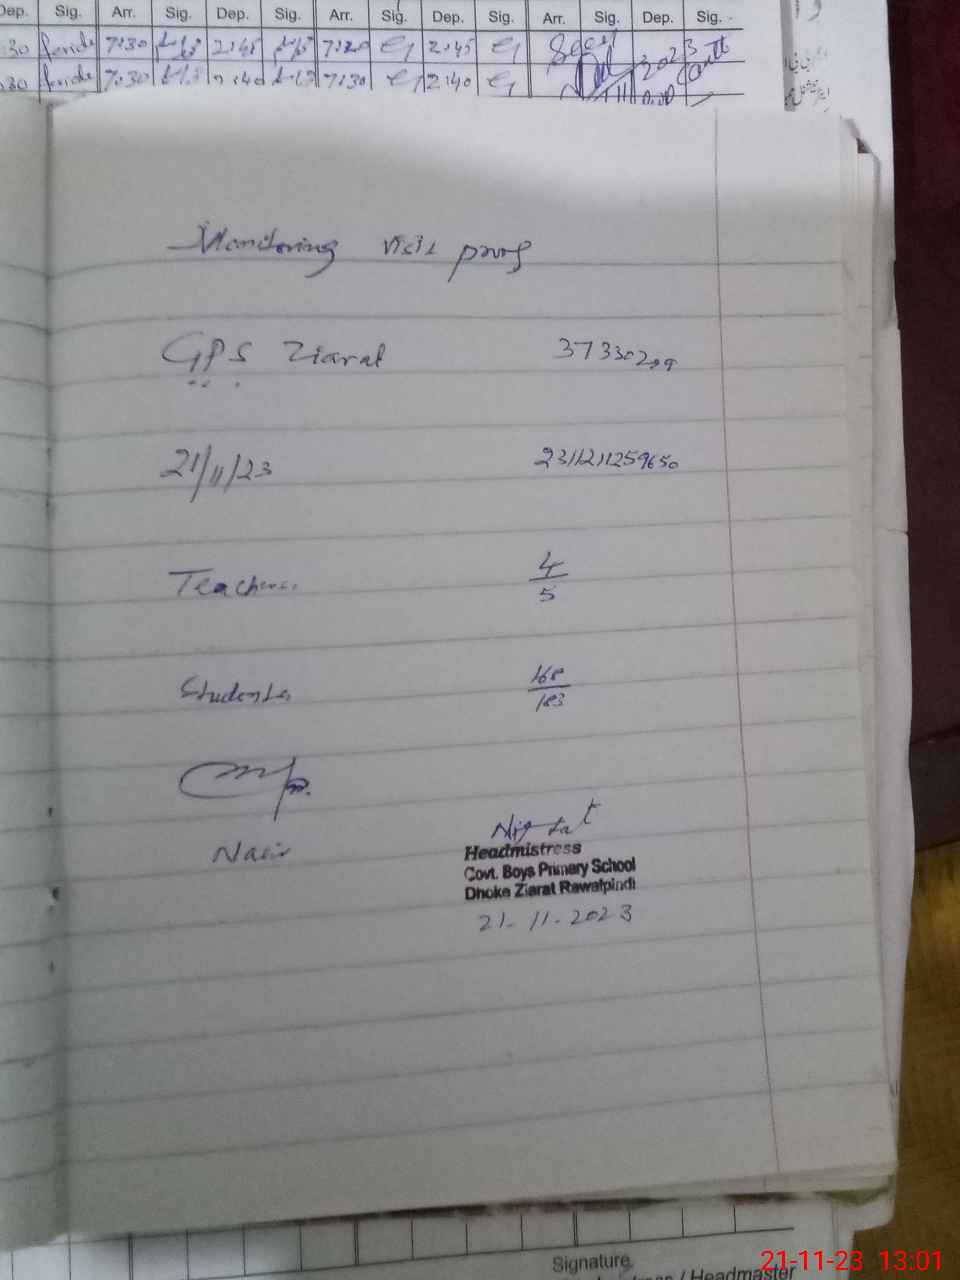 Dep. Sig. Arr. Sig. Dep. Sig. Arr. Sig. Dep. Sig. Arr. Sig. Dep. Sig.
:30 7:30 2:45 7:20 2:45
:30 7:30 2:40 7:30 2:40
Monitoring visit proof
GPS Ziarat 37330209
21/11/23 2311211259650
Teachers. 4/5
Students 168/183
Nasir Nighat
Headmistress
Govt. Boys Primary School
Dhoke Ziarat Rawalpindi
21-11-2023
Signature
/ Headmaster
21-11-23 13:01